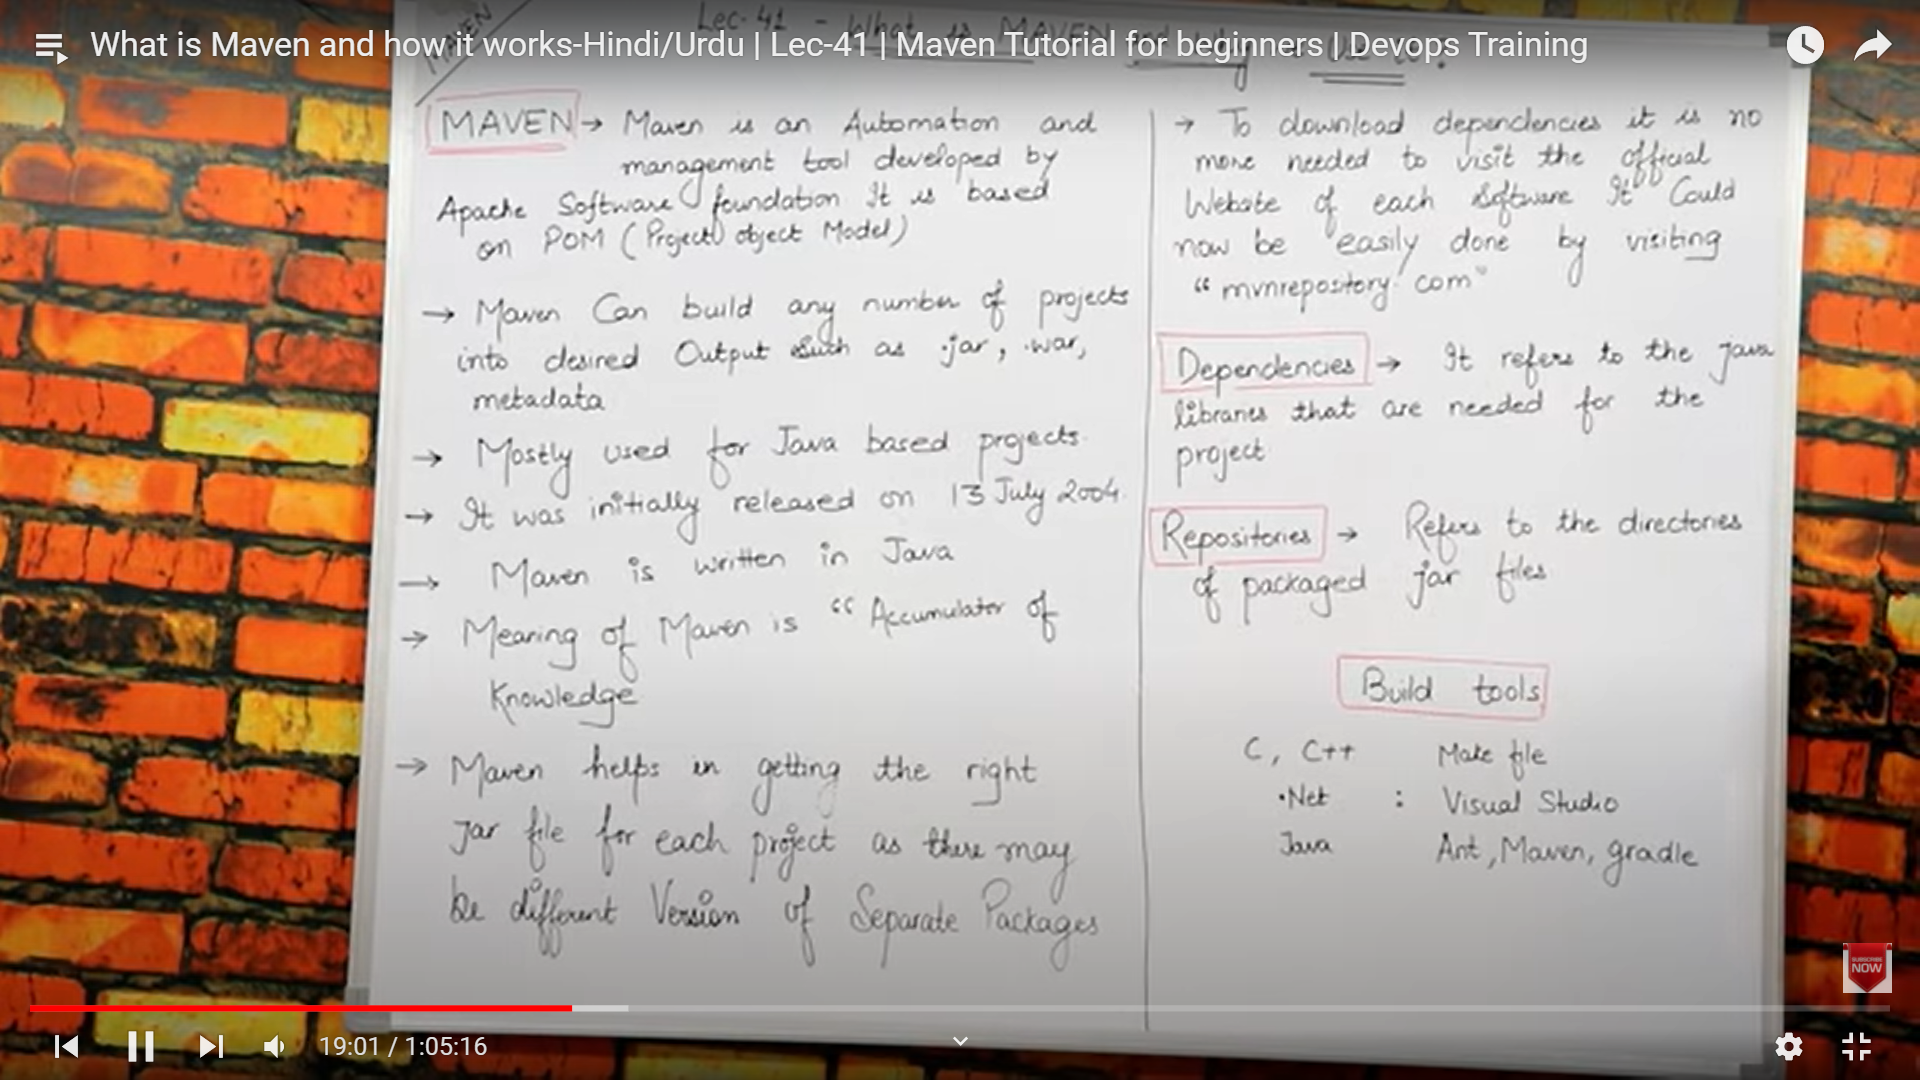 What is Maven and how it works-Hindi/Urdu | Lec-41 | Maven Tutorial for beginners | Devops Training
MAVEN
Lec-41 - What is MAVEN
MAVEN → Maven is an Automation and
management tool developed by
Apache Software foundation It is based
on POM (Project object Model)
→ Maven Can build any number of projects
into desired Output Such as .jar, .war,
metadata
→ Mostly used for Java based projects.
→ It was initially released on 13 July 2004.
→ Maven is written in Java
→ Meaning of Maven is "Accumulator of
Knowledge
→ Maven helps in getting the right
Jar file for each project as there may
be different Version of Separate Packages
→ To download dependencies it is no
more needed to visit the official
Website of each software It Could
now be easily done by visiting
"mvnrepository.com"
Dependencies → It refers to the java
libraries that are needed for the
project
Repositories → Refers to the directories
of packaged jar files
Build tools
C, C++ Make file
.Net : Visual Studio
Java Ant, Maven, gradle
SUBSCRIBE
NOW
19:01 / 1:05:16